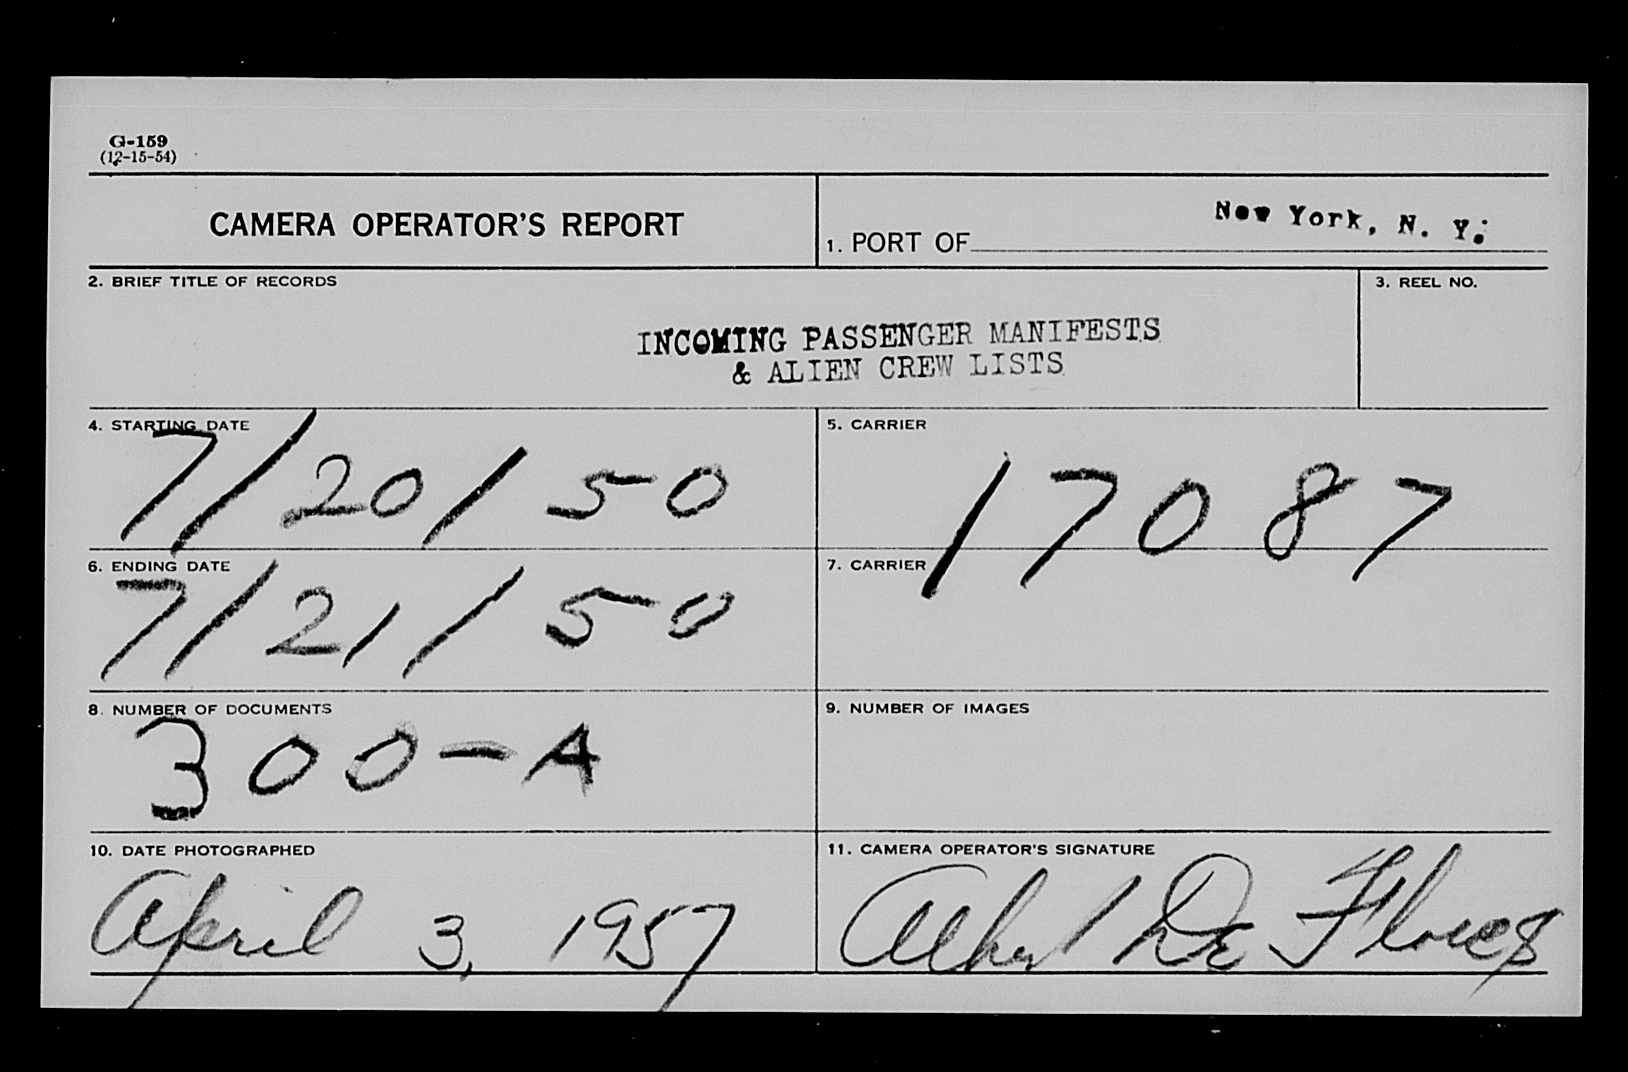 G-159
(12-15-54)
CAMERA OPERATOR'S REPORT
1. PORT OF New York, N. Y.
2. BRIEF TITLE OF RECORDS
3. REEL NO.
INCOMING PASSENGER MANIFESTS
& ALIEN CREW LISTS
4. STARTING DATE
7/20/50
5. CARRIER
17087
6. ENDING DATE
7/21/50
7. CARRIER
8. NUMBER OF DOCUMENTS
300-A
9. NUMBER OF IMAGES
10. DATE PHOTOGRAPHED
April 3, 1957
11. CAMERA OPERATOR'S SIGNATURE
Albert De Flores